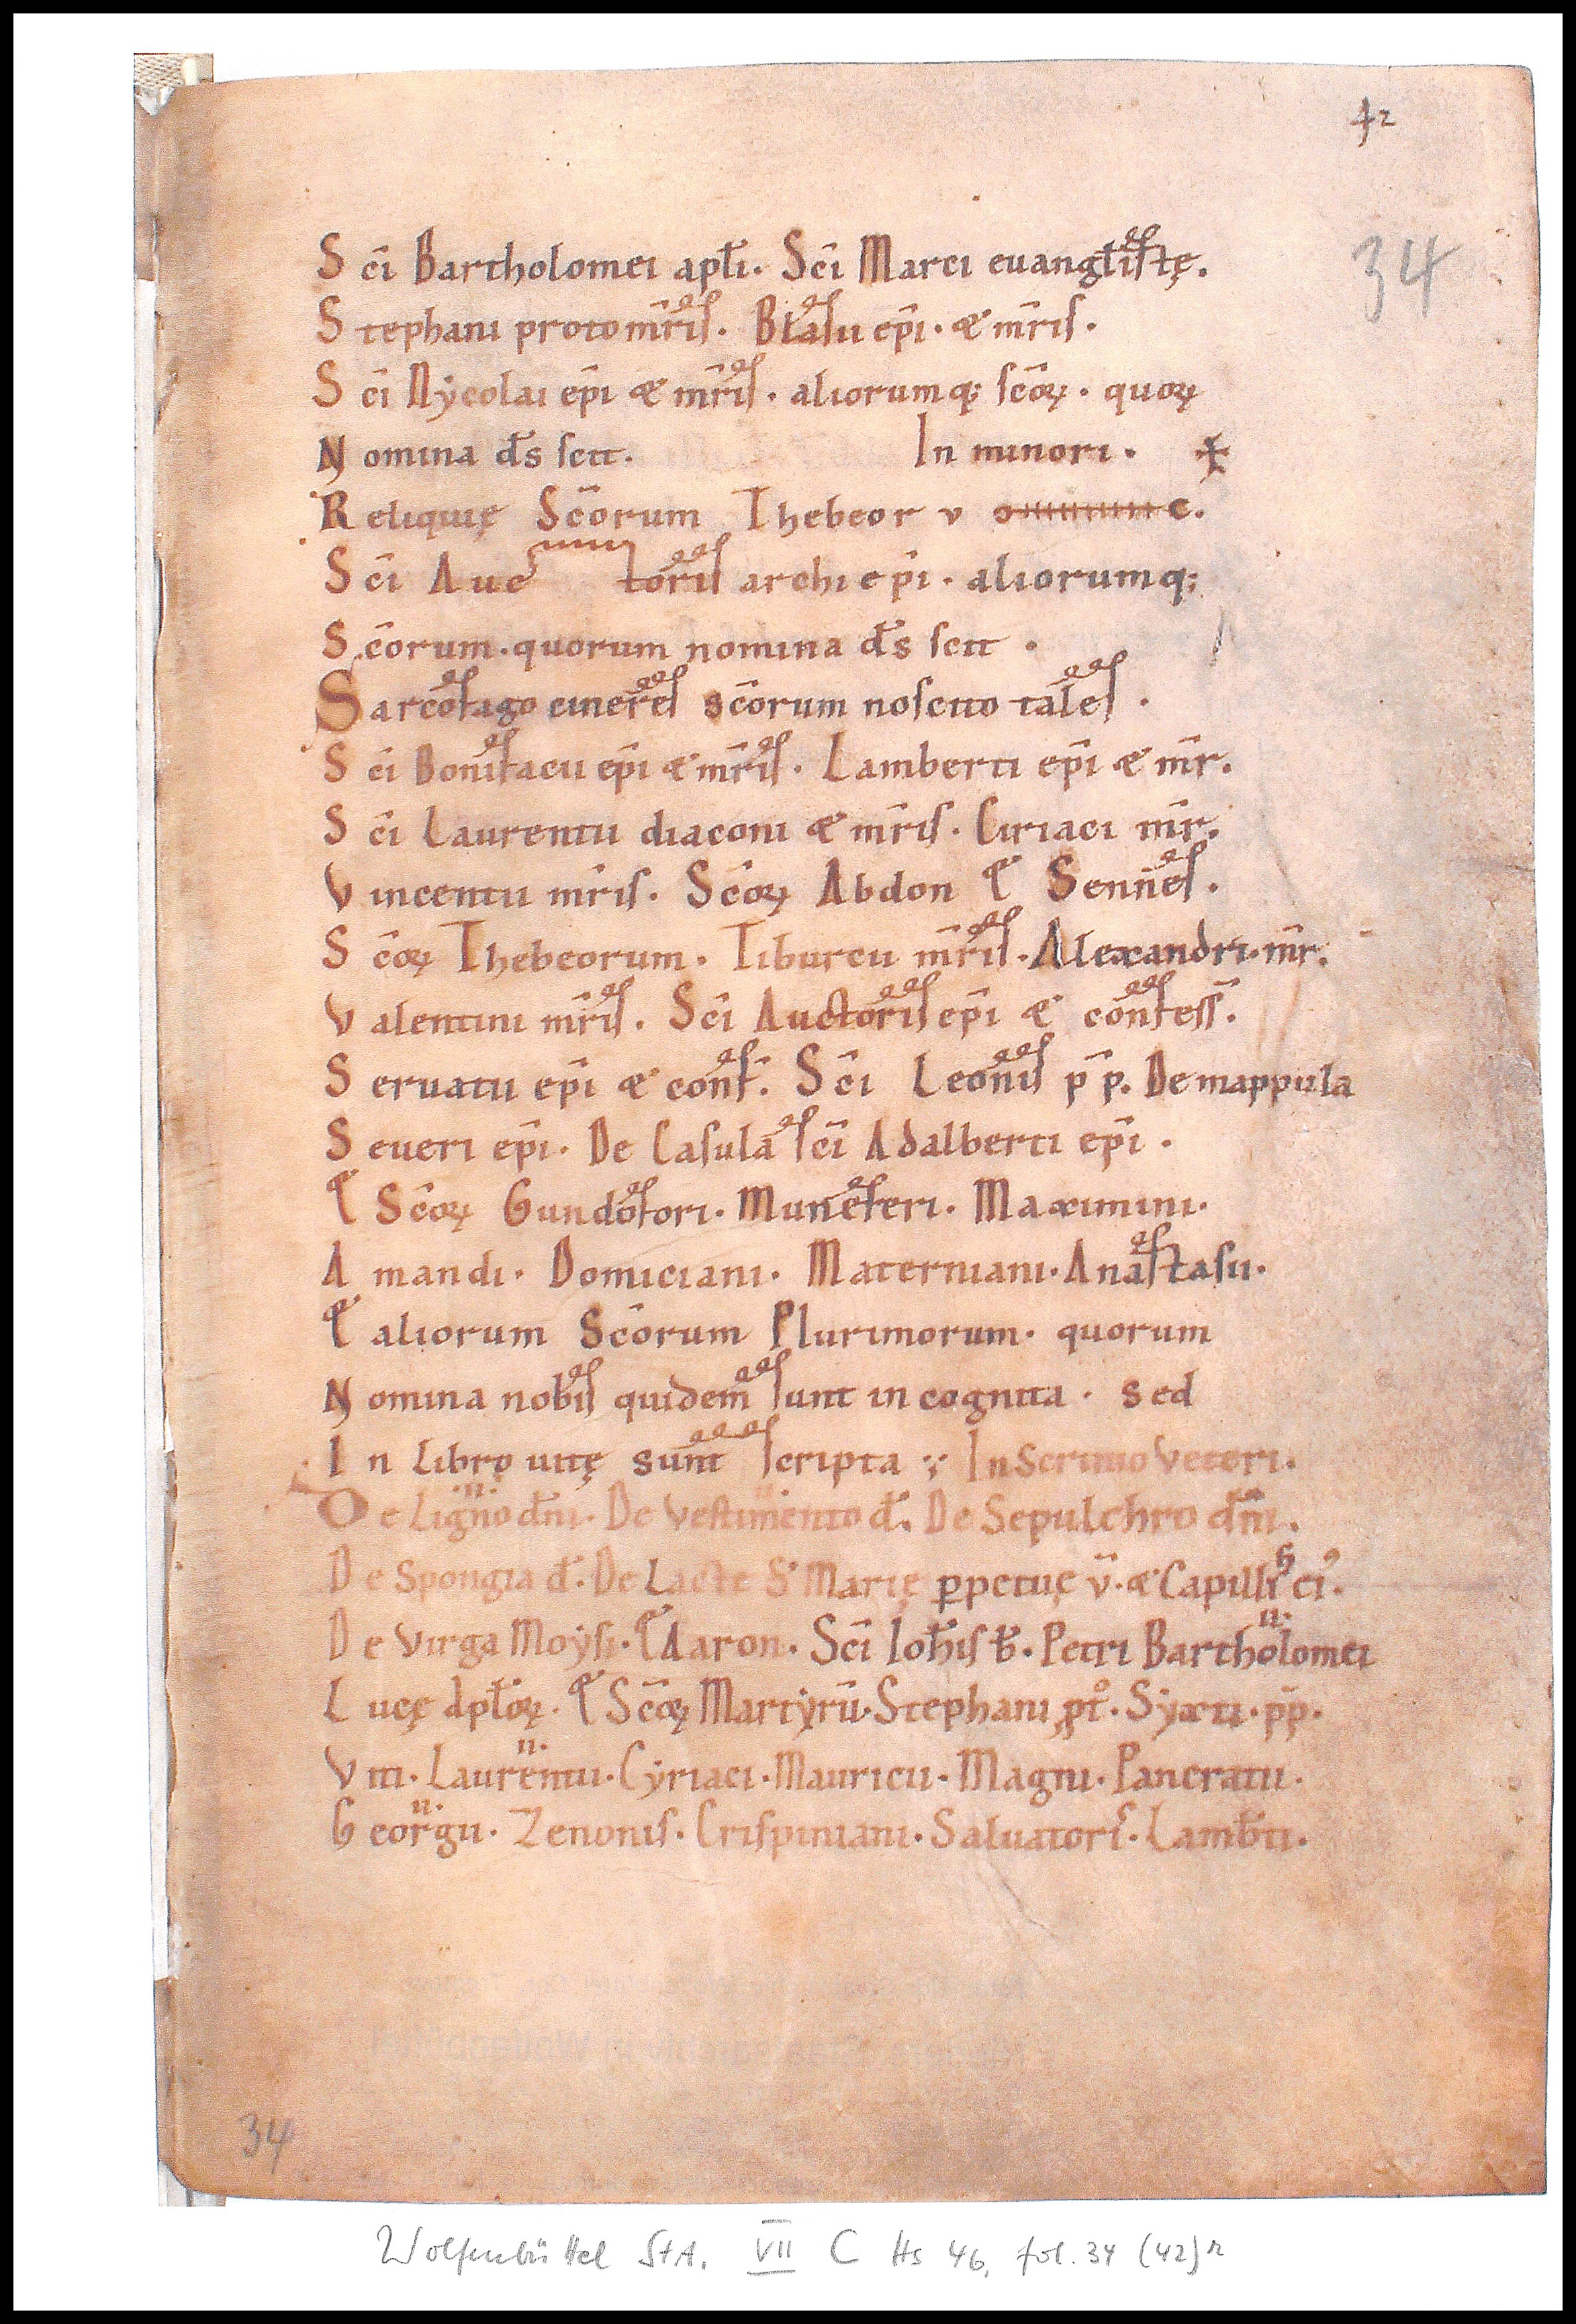 42
34
Sc̄i Bartholomei apl̄i. Sc̄i Marci euangl̄istę.
Stephani protomr̄is. Blasii ep̄i. & mr̄is.
Sc̄i Nẏcolai ep̄i & mr̄is. aliorumq; sc̄oꝝ. quoꝝ
Nomina d̄s scit. In minori. ✝
Reliquię Sc̄orum Thebeor v
Sc̄i Auctoris archiep̄i. aliorumq;
Sc̄orum. quorum nomina d̄s scit.
Sarcofago cineres sc̄orum noscito tales.
Sc̄i Bonifacii ep̄i & mr̄is. Lamberti ep̄i & mr̄.
Sc̄i Laurentii diaconi & mr̄is. Ciriaci mr̄.
Vincentii mr̄is. Sc̄oꝝ Abdon & Sennes.
Sc̄oꝝ Thebeorum. Tiburcii mr̄is. Alexandri. mr̄.
Valentini mr̄is. Sc̄i Auctoris ep̄i & confess̄.
Seruatii ep̄i & conf̄. Sc̄i Leonis p̄p. De mappula
Seueri ep̄i. De Casula sc̄i Adalberti ep̄i.
& Sc̄oꝝ Gundofori. Muneferi. Maximini.
Amandi. Domiciani. Materniani. Anastasii.
& aliorum Sc̄orum Plurimorum. quorum
Nomina nobis quidem sunt incognita. sed
In libro uitę sunt scripta In Scrinio Veteri.
De Ligno dn̄i. De Vestimento d̄. De Sepulchro dn̄i.
De Spongia d̄. De Lacte S. Marię ꝑpetuę v̄. & Capillis ei⁹.
De Virga Moẏsi. & Aaron. Sc̄i Ioh̄is b̄. Petri Bartholomei
Lucę apl̄oꝝ. & Sc̄oꝝ Martẏrū. Stephani pt°. Sẏxti. p̄p.
Viti. Laurentii. Cẏriaci. Mauricii. Magni. Pancratii.
Georgii. Zenonis. Crispiniani. Saluatoris. Lamb̄ti.
34
Wolfenbüttel StA. VII C Hs 46, fol. 34 (42)r